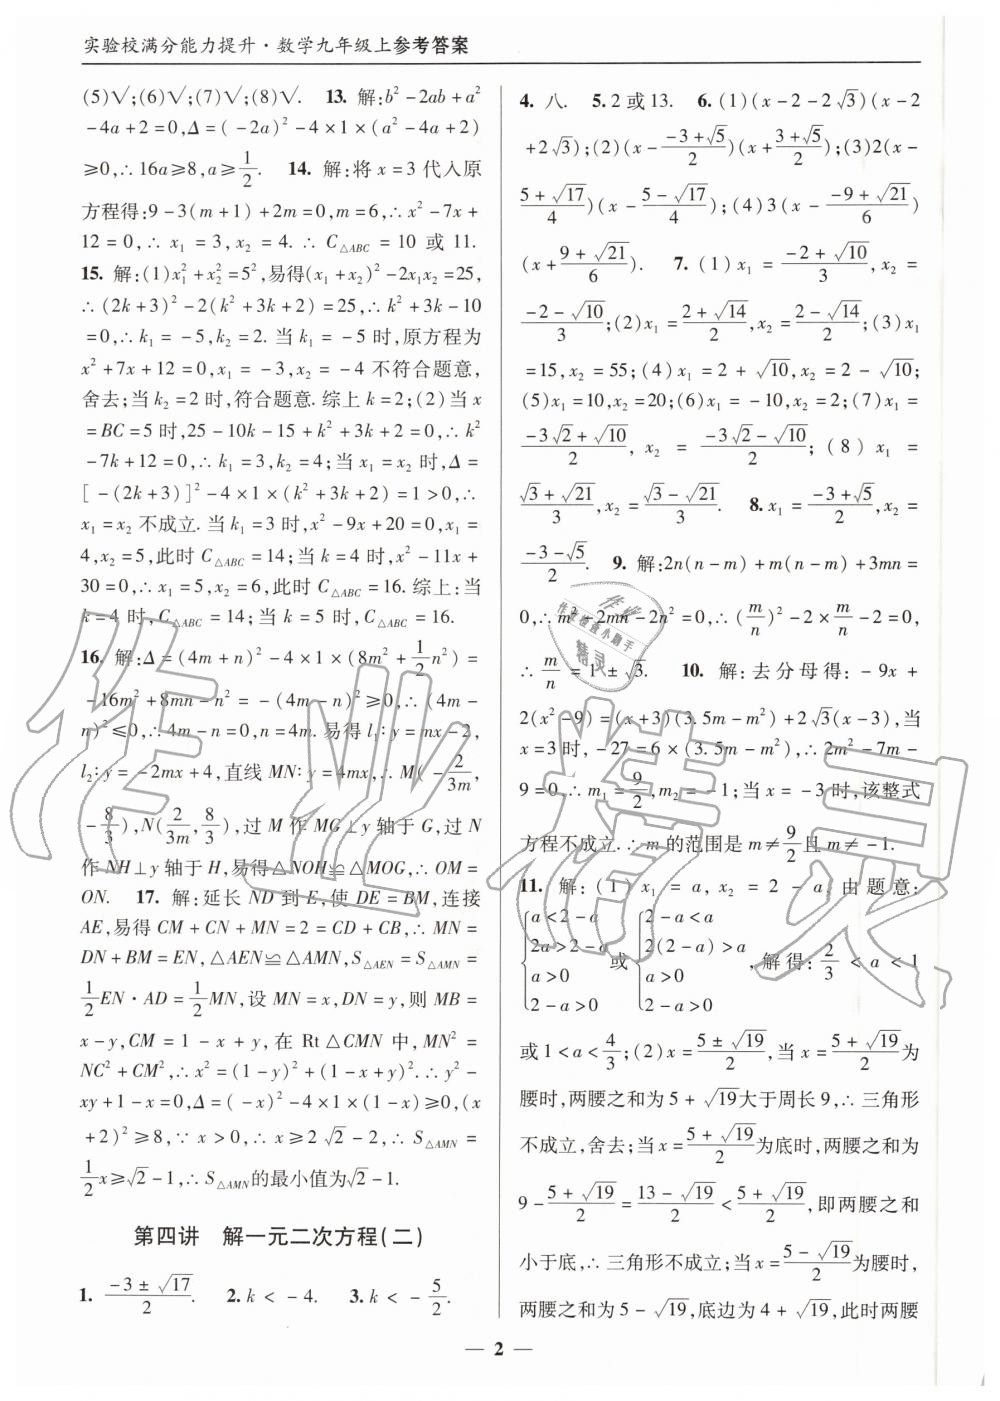 实验校满分能力提升·数学九年级上参考答案
(5)√;(6)√;(7)√;(8)√. 13. 解:b²-2ab+a²
-4a+2=0,Δ=(-2a)²-4×1×(a²-4a+2)
≥0,∴16a≥8,a≥1/2. 14. 解:将x=3代入原
方程得:9-3(m+1)+2m=0,m=6,∴x²-7x+
12=0,∴x₁=3,x₂=4.∴C△ABC=10或11.
15. 解:(1)x₁²+x₂²=5²,易得(x₁+x₂)²-2x₁x₂=25,
∴(2k+3)²-2(k²+3k+2)=25,∴k²+3k-10
=0,∴k₁=-5,k₂=2.当k₁=-5时,原方程为
x²+7x+12=0,x₁=-3,x₂=-4不符合题意,
舍去;当k₂=2时,符合题意.综上k=2;(2)当x
=BC=5时,25-10k-15+k²+3k+2=0,∴k²
-7k+12=0,∴k₁=3,k₂=4;当x₁=x₂时,Δ=
[-(2k+3)]²-4×1×(k²+3k+2)=1>0,∴
x₁=x₂不成立.当k₁=3时,x²-9x+20=0,x₁=
4,x₂=5,此时C△ABC=14;当k=4时,x²-11x+
30=0,∴x₁=5,x₂=6,此时C△ABC=16.综上:当
k=4时,C△ABC=14;当k=5时,C△ABC=16.
16. 解:Δ=(4m+n)²-4×1×(8m²+1/2n²)=
-16m²+8mn-n²=-(4m-n)²≥0,∴(4m-
n)²≤0,∴4m-n=0,n=4m.易得l₁:y=mx-2,
l₂:y=-2mx+4,直线MN:y=4mx,∴M(-2/3m,
-8/3),N(2/3m,8/3),过M作MG⊥y轴于G,过N
作NH⊥y轴于H,易得△NOH≌△MOG,∴OM=
ON. 17. 解:延长ND到E,使DE=BM,连接
AE,易得CM+CN+MN=2=CD+CB,∴MN=
DN+BM=EN,△AEN≌△AMN,S△AEN=S△AMN=
1/2EN·AD=1/2MN,设MN=x,DN=y,则MB=
x-y,CM=1-x+y,在Rt△CMN中,MN²=
NC²+CM²,∴x²=(1-y)²+(1-x+y)².∴y²-
xy+1-x=0,Δ=(-x)²-4×1×(1-x)≥0,(x
+2)²≥8,∵x>0,∴x≥2√2-2,∴S△AMN=
1/2x≥√2-1,∴S△AMN的最小值为√2-1.
第四讲 解一元二次方程(二)
1. (-3±√17)/2. 2. k<-4. 3. k<-5/2.
4. 八. 5. 2或13. 6. (1)(x-2-2√3)(x-2
+2√3);(2)(x-(-3+√5)/2)(x+(3+√5)/2);(3)2(x-
(5+√17)/4)(x-(5-√17)/4);(4)3(x-(-9+√21)/6)
(x+(9+√21)/6). 7. (1)x₁=(-2+√10)/3,x₂=
(-2-√10)/3;(2)x₁=(2+√14)/2,x₂=(2-√14)/2;(3)x₁
=15,x₂=55;(4)x₁=2+√10,x₂=2-√10;
(5)x₁=10,x₂=20;(6)x₁=-10,x₂=2;(7)x₁=
(-3√2+√10)/2,x₂=(-3√2-√10)/2;(8)x₁=
(√3+√21)/3,x₂=(√3-√21)/3. 8. x₁=(-3+√5)/2,x₂=
(-3-√5)/2. 9. 解:2n(n-m)+m(n-m)+3mn=
0,∴m²-2mn-2n²=0,∴(m/n)²-2×m/n-2=0,
∴m/n=1±√3. 10. 解:去分母得:-9x+
2(x²-9)=(x+3)(3.5m-m²)+2√3(x-3),当
x=3时,-27=6×(3.5m-m²),∴2m²-7m-
9=0,∴m₁=9/2,m₂=-1;当x=-3时,该整式
方程不成立.∴m的范围是m≠9/2且m≠-1.
11. 解:(1)x₁=a,x₂=2-a,由题意:
{a<2-a 2a>2-a a>0 2-a>0 或 {2-a<a 2(2-a)>a a>0 2-a>0,解得:2/3<a<1
或1<a<4/3;(2)x=(5±√19)/2,当x=(5+√19)/2为
腰时,两腰之和为5+√19大于周长9,∴三角形
不成立,舍去;当x=(5+√19)/2为底时,两腰之和为
9-(5+√19)/2=(13-√19)/2<(5+√19)/2,即两腰之和
小于底,∴三角形不成立;当x=(5-√19)/2为腰时,
两腰之和为5-√19,底边为4+√19,此时两腰
— 2 —
作业精灵